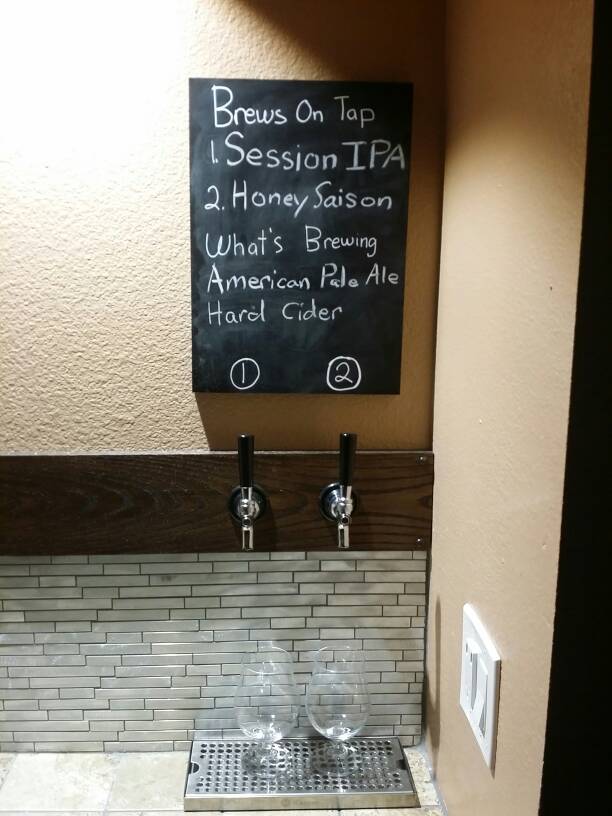 Brews On Tap
1. Session IPA
2. Honey Saison
What's Brewing
American Pale Ale
Hard Cider
1 2